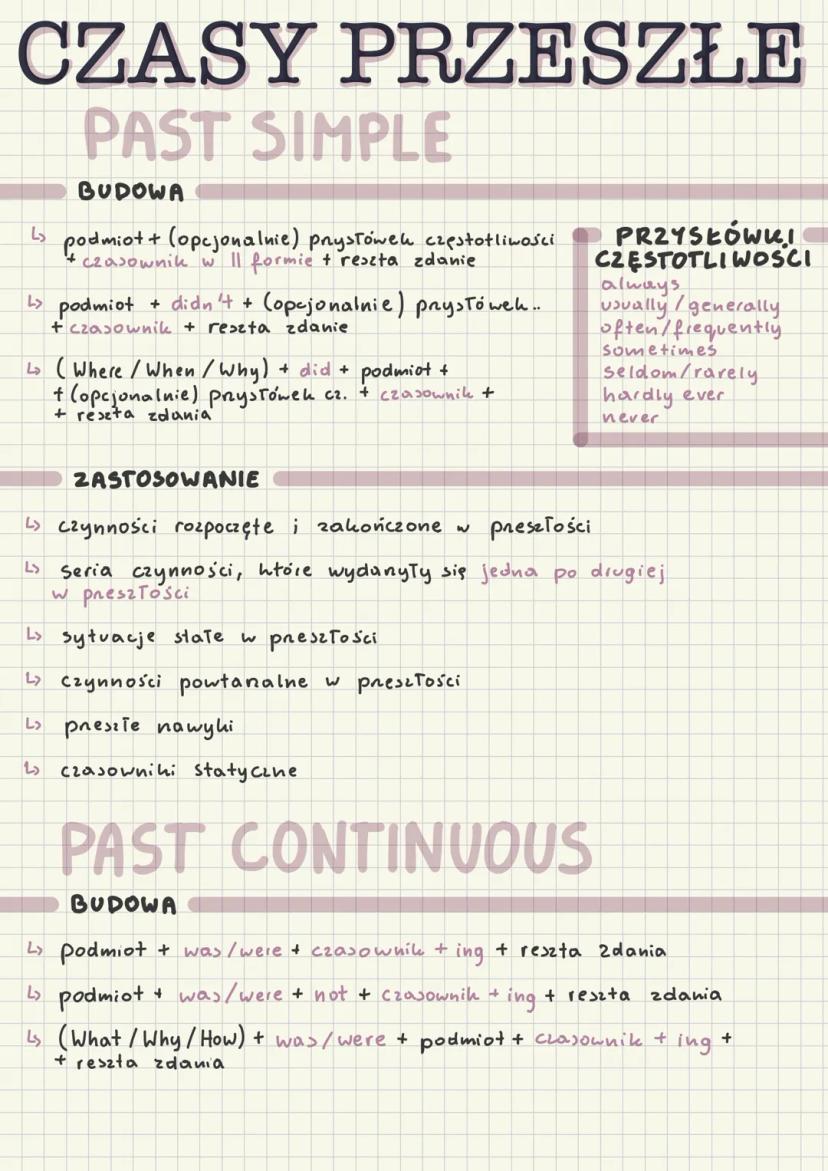 CZASY PRZESZŁE
PAST SIMPLE
BUDOWA
↳ podmiot + (opcjonalnie) przysłówek częstotliwości
+ czasownik w II formie + reszta zdanie
↳ podmiot + didn't + (opcjonalnie) przysłówek..
+ czasownik + reszta zdanie
↳ (Where / When / Why) + did + podmiot +
+ (opcjonalnie) przysłówek cz. + czasownik +
+ reszta zdania
PRZYSŁÓWKI
CZĘSTOTLIWOŚCI
always
usually / generally
often / frequently
sometimes
seldom / rarely
hardly ever
never
ZASTOSOWANIE
↳ czynności rozpoczęte i zakończone w przeszłości
↳ seria czynności, które wydarzyły się jedna po drugiej
w przeszłości
↳ sytuacje stałe w przeszłości
↳ czynności powtarzalne w przeszłości
↳ przeszłe nawyki
↳ czasowniki statyczne
PAST CONTINUOUS
BUDOWA
↳ podmiot + was/were + czasownik + ing + reszta zdania
↳ podmiot + was/were + not + czasownik + ing + reszta zdania
↳ (What / Why / How) + was/were + podmiot + czasownik + ing +
+ reszta zdania